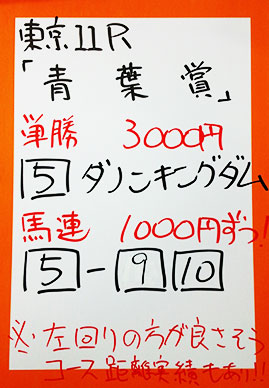 東京11R
「青葉賞」
単勝 3000円
5 ダノンキングダム
馬連 1000円ずつ!
5-9 10
※左回りの方が良さそう
コース距離実績もあり!!